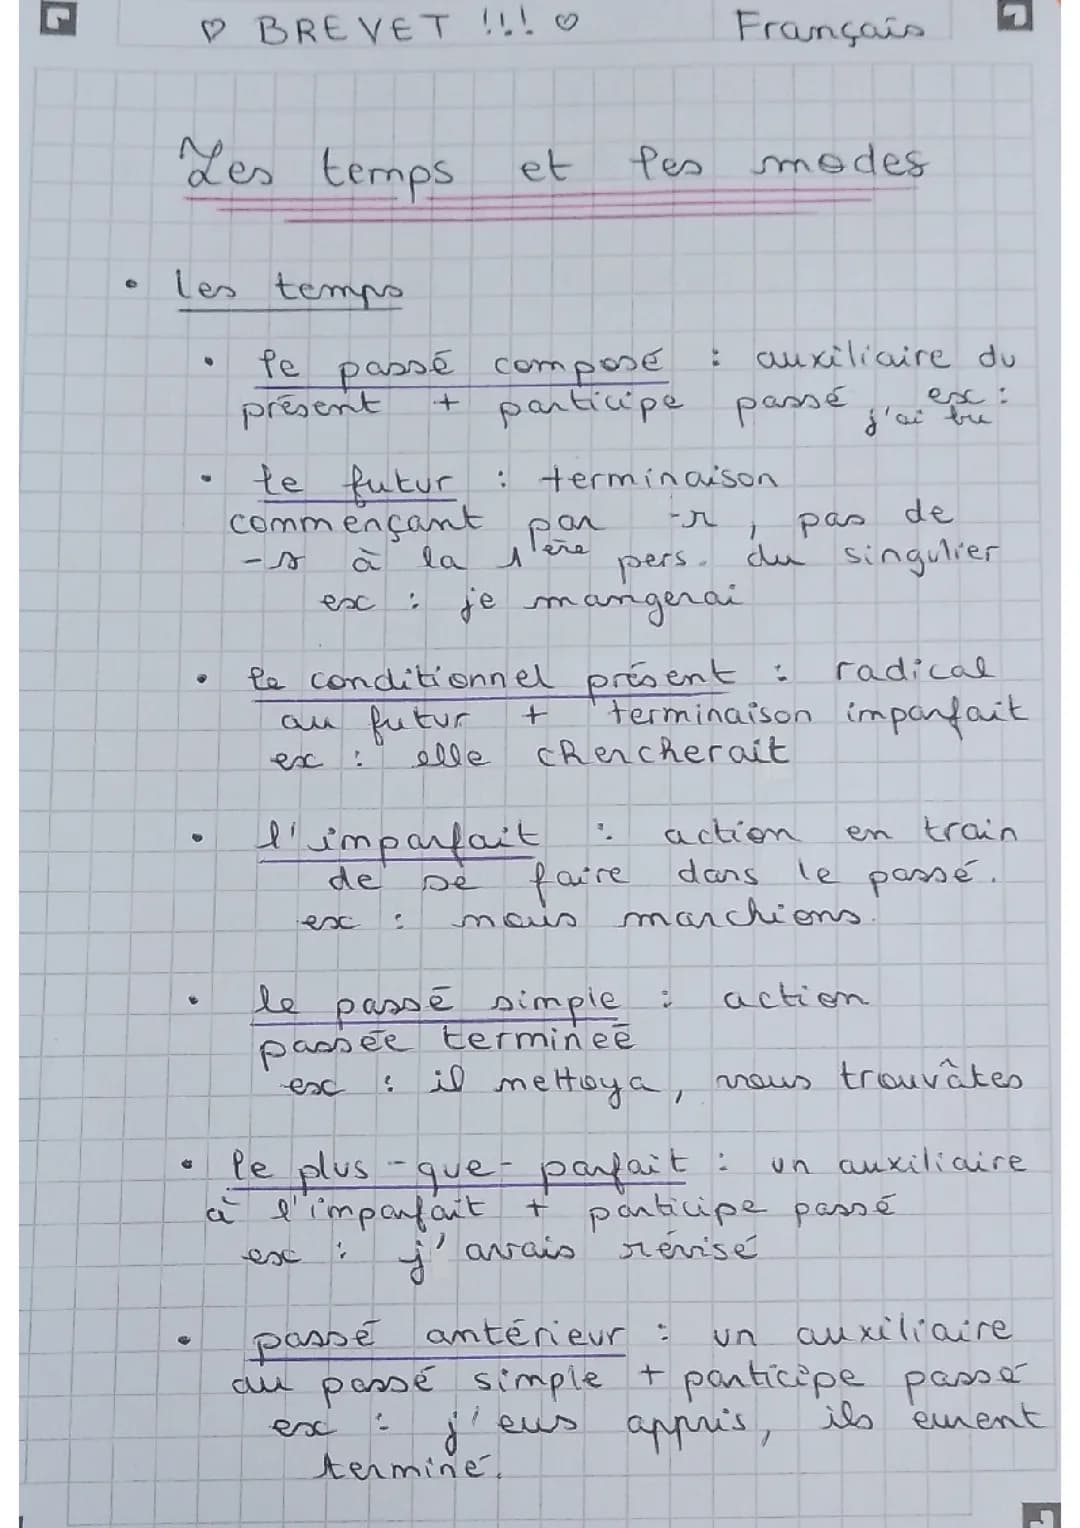 ♡ BREVET !!! ♡ Français
Les temps et les modes
• les temps
• le passé composé : auxiliaire du
présent + participe passé ex :
j'ai bu
• le futur : terminaison
commençant par -r, pas de
-s à la 1ère pers. du singulier
ex : je mangerai
• le conditionnel présent : radical
au futur + terminaison imparfait
ex : elle chercherait
• l'imparfait : action en train
de se faire dans le passé.
ex : nous marchions.
• le passé simple : action
passée terminée
ex : il nettoya, vous trouvâtes
• le plus-que-parfait : un auxiliaire
à l'imparfait + participe passé
ex : j'avais révisé
• passé antérieur : un auxiliaire
au passé simple + participe passé
ex : j'eus appris, ils eurent
terminé.